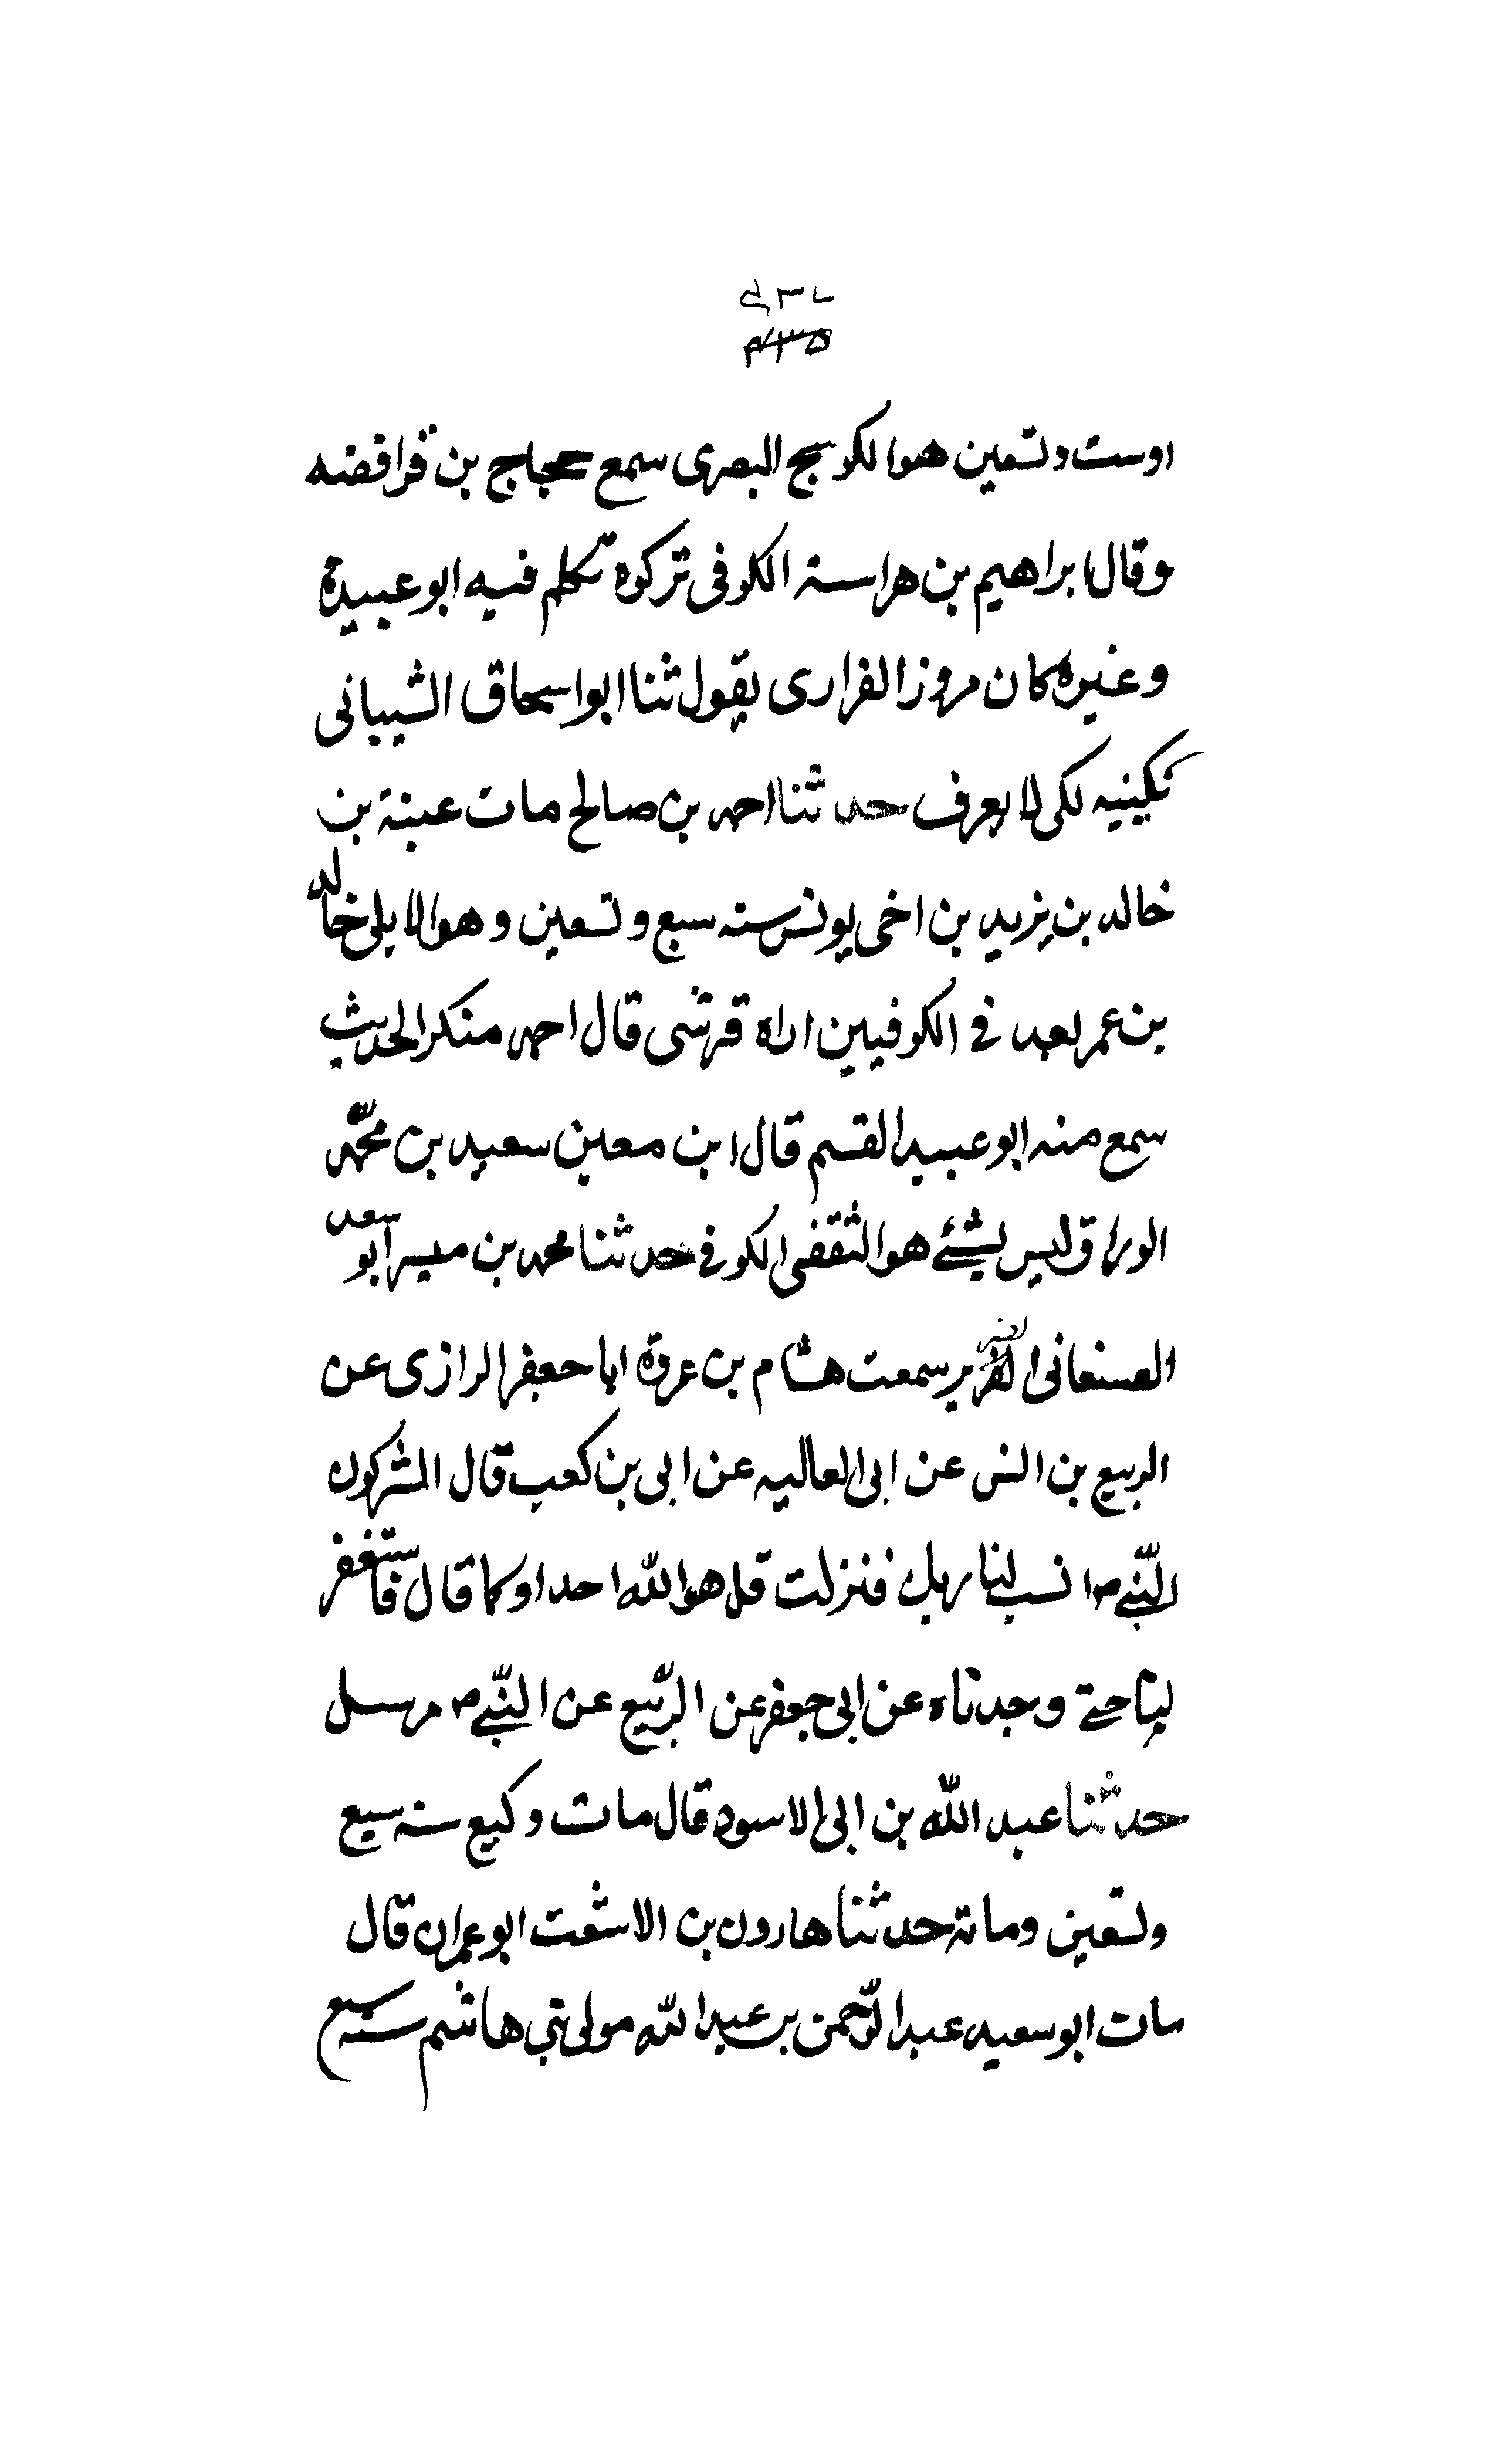 ٤٣٥
اوست وتسعين هو الكوسج البصرى سمع حجاج بن فرافضه
وقال ابراهيم بن هراسة الكوفى تركوه تكلم فيه ابو عبيدة
وغيره كان مروز الفزارى يقول ثنا ابو اسحاق الشيبانى
تكينيه لكى لا يعرف حدثنا احمد بن صالح مات عبنة بن
خالد بن يزيد بن اخى يونس سنه سبع وتسعين وهو الايلى خالد
بن عمر يعد فى الكوفيين اراه قرشى قال احمد منكر الحديث
سمع منه ابو عبيد القسم قال ابن معين سعيد بن محمّد
الوراق ليس بشئ هو الثقفى الكوفى حدثنا محمد بن ميسر ابو سعد
الصنعانى الضرير سمعت هشام بن عروة ابا جعفر الرازى عن
الربيع بن انس عن ابى العاليه عن ابى بن كعب قال المشركون
للنّبى ص انسب لنا ربك فنزلت قل هو الله احد او كما قال فاستغفر
لنا حتى وجدناه عن ابى جعفر عن الرّبيع عن النّبى ص مرسل
حدثنا عبد اللّه بن ابى الاسود قال مات وكيع سنه سبع
وتسعين ومائة حدثنا هارون بن الاشعت ابو عمران قال
مات ابو سعيد عبد الرّحمن بن عبد اللّه مولى بنى هاشم سنه سبع